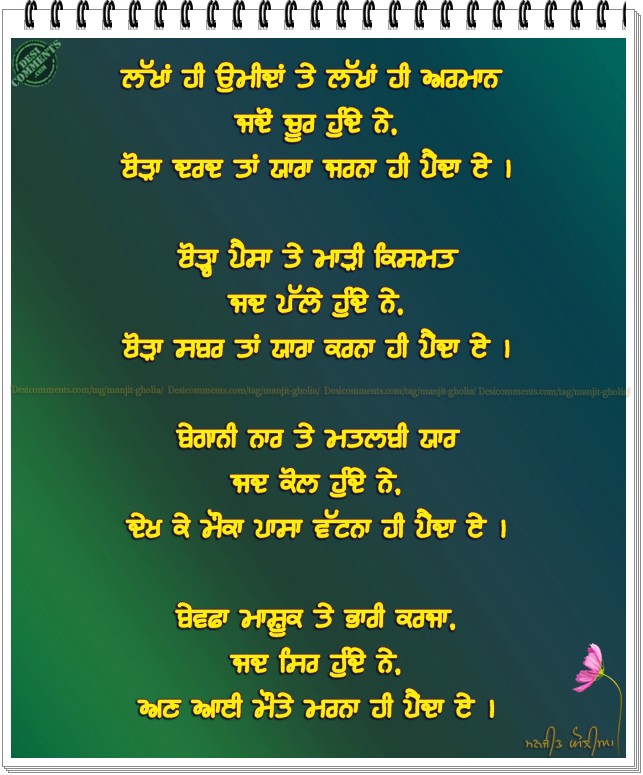 DESI COMMENTS .com
ਲੱਖਾਂ ਹੀ ਉਮੀਦਾਂ ਤੇ ਲੱਖਾਂ ਹੀ ਅਰਮਾਨ
ਜਦੋਂ ਚੂਰ ਹੁੰਦੇ ਨੇ,
ਥੋੜਾ ਦਰਦ ਤਾਂ ਯਾਰਾ ਜਰਨਾ ਹੀ ਪੈਂਦਾ ਏ ।
ਥੋੜ੍ਹਾ ਪੈਸਾ ਤੇ ਮਾੜੀ ਕਿਸਮਤ
ਜਦ ਪੱਲੇ ਹੁੰਦੇ ਨੇ,
ਥੋੜਾ ਸਬਰ ਤਾਂ ਯਾਰਾ ਕਰਨਾ ਹੀ ਪੈਂਦਾ ਏ ।
Desicomments.com/tag/manjit-gholia/ Desicomments.com/tag/manjit-gholia/ Desicomments.com/tag/manjit-gholia/ Desicomments.com/tag/manjit-gholia/
ਬੇਗਾਨੀ ਨਾਰ ਤੇ ਮਤਲਬੀ ਯਾਰ
ਜਦ ਕੋਲ ਹੁੰਦੇ ਨੇ,
ਦੇਖ ਕੇ ਮੌਕਾ ਪਾਸਾ ਵੱਟਨਾ ਹੀ ਪੈਂਦਾ ਏ ।
ਬੇਵਫਾ ਮਾਸ਼ੂਕ ਤੇ ਭਾਰੀ ਕਰਜਾ,
ਜਦ ਸਿਰ ਹੁੰਦੇ ਨੇ,
ਅਣ ਆਈ ਮੌਤੇ ਮਰਨਾ ਹੀ ਪੈਂਦਾ ਏ ।
ਮਨਜੀਤ ਘੋਲੀਆ